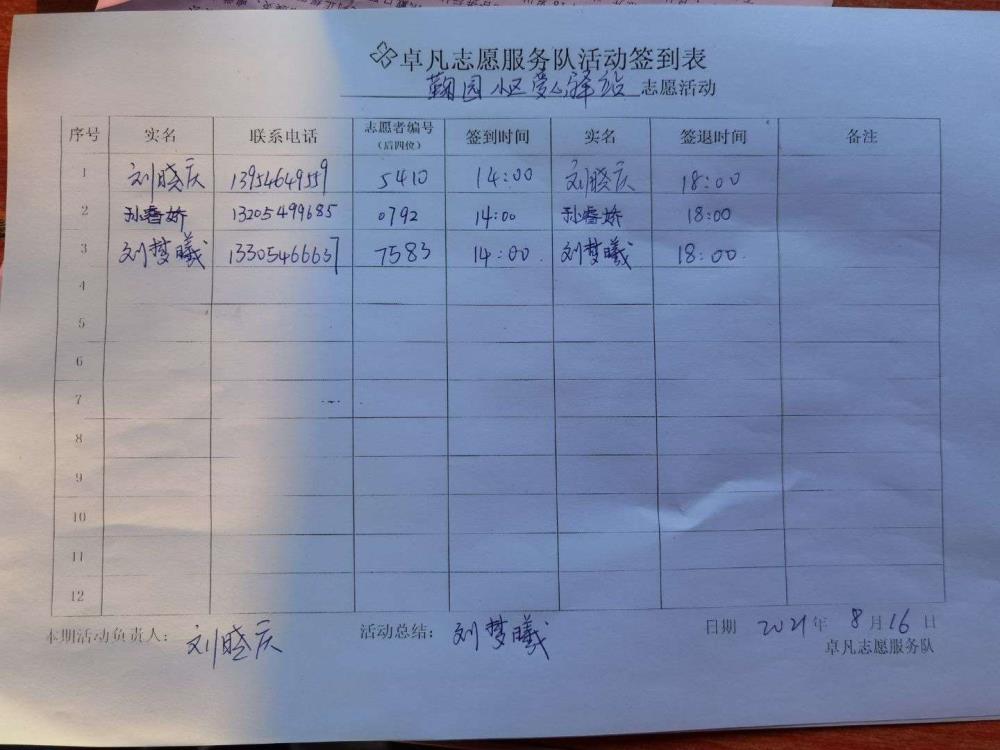 卓凡志愿服务队活动签到表
菊园小区爱心驿站 志愿活动
序号 实名 联系电话 志愿者编号(后四位) 签到时间 实名 签退时间 备注
1 刘晓庆 13954649559 5410 14:00 刘晓庆 18:00
2 孙春娇 13205499685 0792 14:00 孙春娇 18:00
3 刘梦曦 13305466637 7583 14:00. 刘梦曦 18:00.
4
5
6
7
8
9
10
11
12
本期活动负责人: 刘晓庆 活动总结: 刘梦曦 日期 2021年 8月16日
卓凡志愿服务队